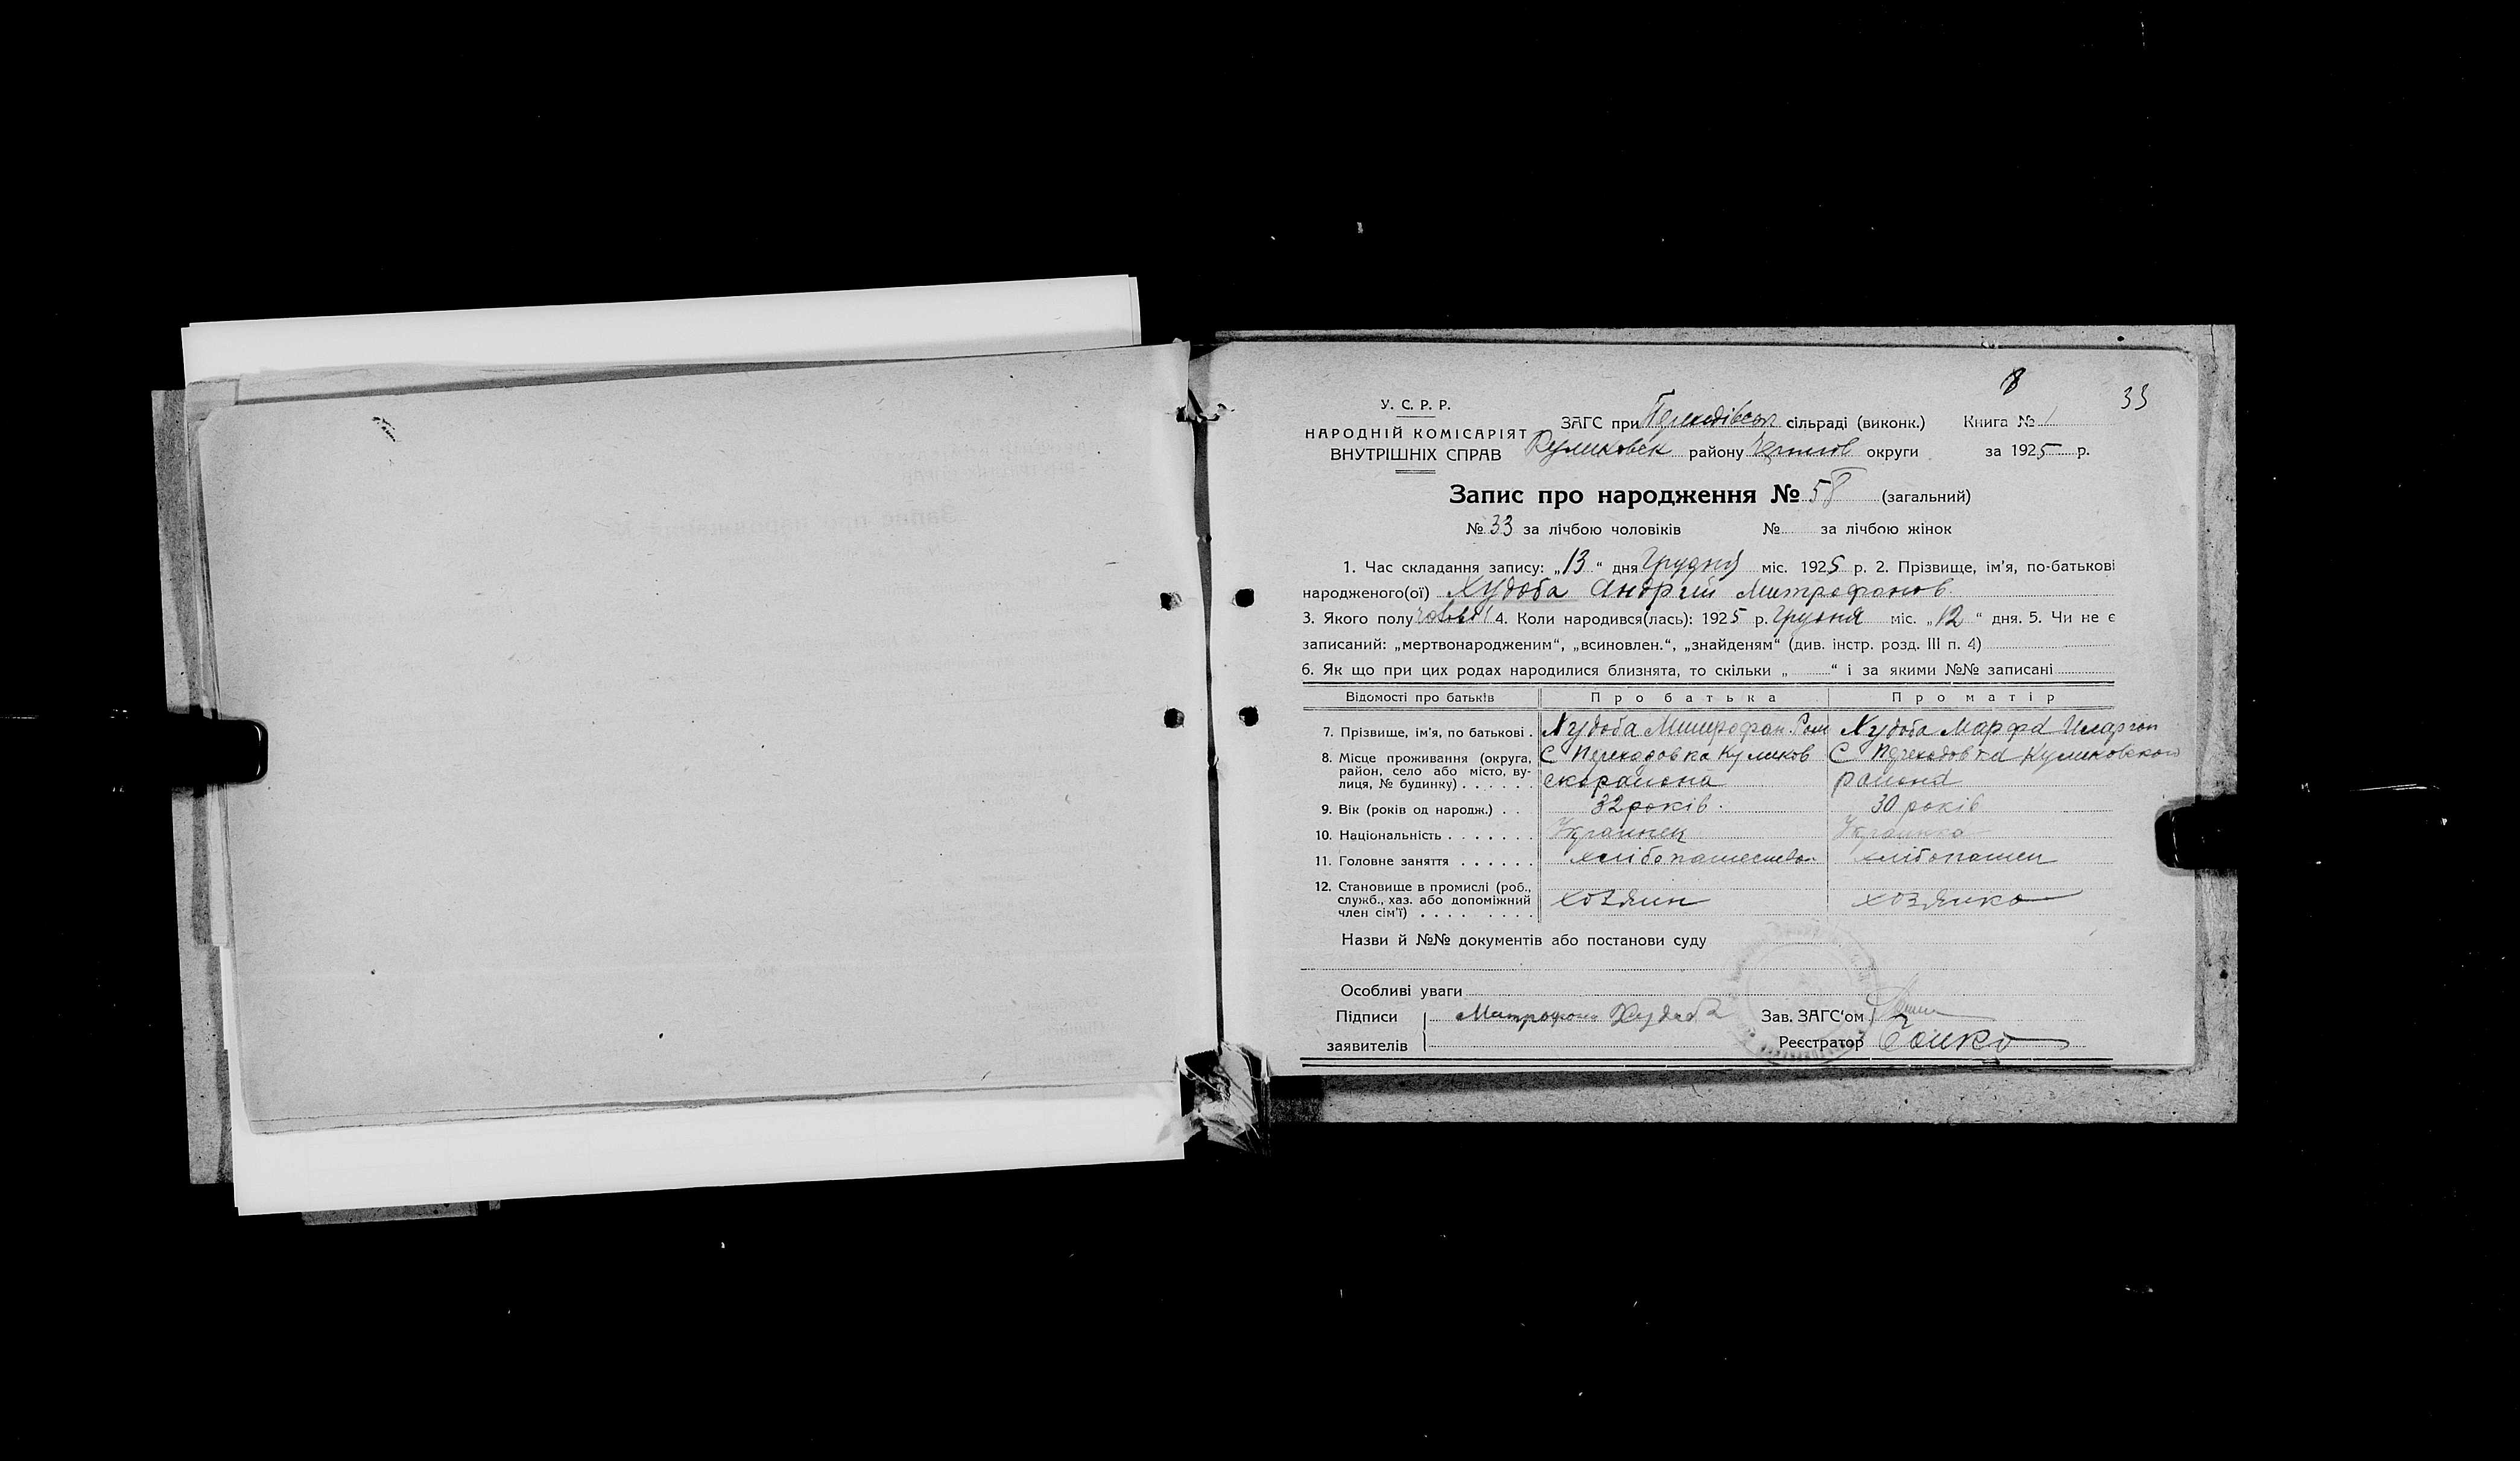 8
33
У. С. Р. Р.
НАРОДНІЙ КОМІСАРІЯТ
ВНУТРІШНІХ СПРАВ
ЗАГС при сільраді (виконк.) Книга № 1
Куликовск району округи за 1925 р.
Запис про народження № 58 (загальний)
№ 33 за лічбою чоловіків № за лічбою жінок
1. Час складання запису: „13“ дня Грудня міс. 1925 р. 2. Прізвище, ім'я, по-батькові
народженого(ої) Худоба Андрій Митрофанов.
3. Якого полу 4. Коли народився(лась): 1925 р. Грудня міс. „12“ дня. 5. Чи не є
записаний: „мертвонародженим“, „всиновлен.“, „знайденям“ (див. інстр. розд. III п. 4)
6. Як що при цих родах народилися близнята, то скільки „ “ і за якими №№ записані
Відомості про батьків Про батька Про матір
7. Прізвище, ім'я, по батькові . Худоба Митрофан Ром Худоба Марфа
8. Місце проживання (округа, С Переходовка Куликов С Переходовка Куликовского
район, село або місто, ву- скорайона района
лиця, № будинку) . . . . . .
9. Вік (років од народж.) . . 32 років. 30 років
10. Національність . . . . . . . Украинец Украинка
11. Головне заняття . . . . . . хлібопашество хлібопашец
12. Становище в промислі (роб.,
служб., хаз. або допоміжний хозяин хозяйка
член сім'ї) . . . . . . . . .
Назви й №№ документів або постанови суду
Особливі уваги
Підписи Митрофан Худоба Зав. ЗАГС'ом
заявителів Реєстратор Бойко